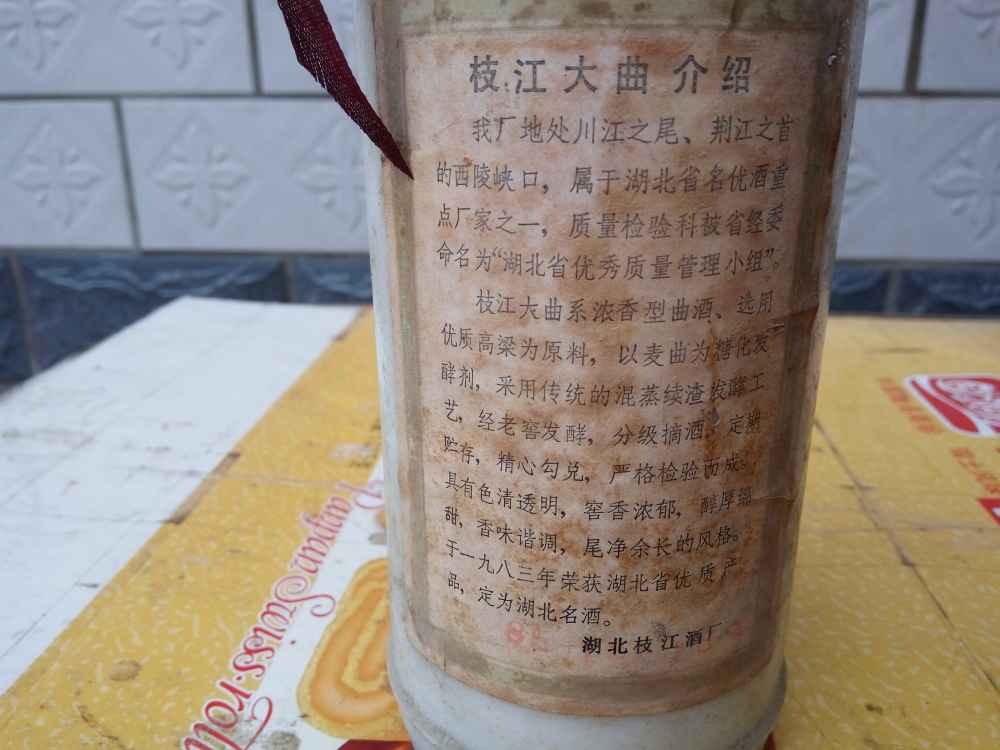 枝江大曲介绍
我厂地处川江之尾、荆江之首
的西陵峡口，属于湖北省名优酒重
点厂家之一，质量检验科被省经委
命名为“湖北省优秀质量管理小组”。
枝江大曲系浓香型曲酒、选用
优质高粱为原料，以麦曲为糖化发
酵剂，采用传统的混蒸续渣发酵工
艺，经老窖发酵，分级摘酒、定期
贮存，精心勾兑，严格检验而成。
具有色清透明，窖香浓郁，醇厚绵
甜，香味谐调，尾净余长的风格。
于一九八三年荣获湖北省优质产
品，定为湖北名酒。
湖北枝江酒厂
Swiss·roll